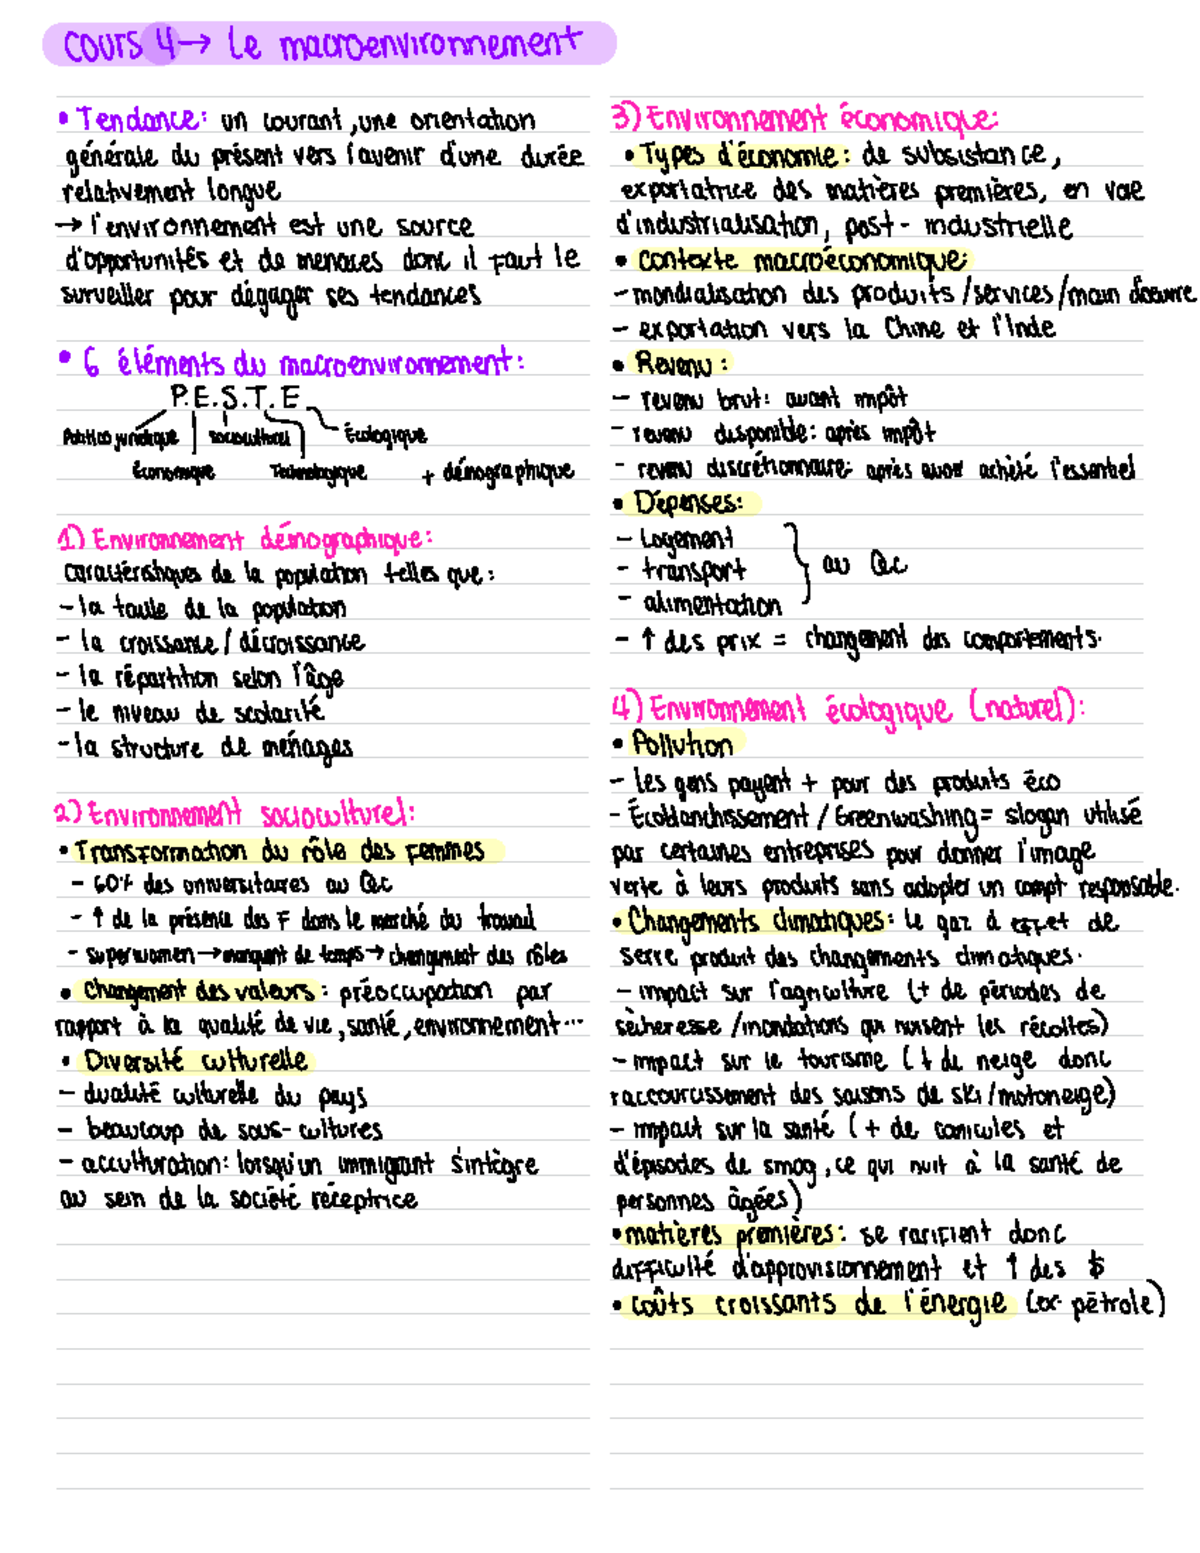 COURS 4 → Le macroenvironnement
• Tendance: un courant, une orientation
générale du présent vers l'avenir d'une durée
relativement longue
→ l'environnement est une source
d'opportunités et de menaces donc il faut le
surveiller pour dégager ses tendances
• 6 éléments du macroenvironnement:
P.E.S.T.E
Politico juridique | socioculturel | Écologique
Économique Technologique + démographique
1) Environnement démographique:
caractéristiques de la population telles que:
- la taille de la population
- la croissance / décroissance
- la répartition selon l'âge
- le niveau de scolarité
- la structure de ménages
2) Environnement socioculturel:
• Transformation du rôle des femmes
- 60% des universitaires au Qc
- ↑ de la présence des F dans le marché du travail
- superwomen → manquent de temps → changement des rôles
• Changement des valeurs: préoccupation par
rapport à la qualité de vie, santé, environnement...
• Diversité culturelle
- dualité culturelle du pays
- beaucoup de sous-cultures
- acculturation: lorsqu'un immigrant s'intègre
au sein de la société réceptrice
3) Environnement économique:
• Types d'économie: de subsistance,
exportatrice des matières premières, en voie
d'industrialisation, post-industrielle
• Contexte macroéconomique:
- mondialisation des produits/services/main d'oeuvre
- exportation vers la Chine et l'Inde
• Revenu:
- revenu brut: avant impôt
- revenu disponible: après impôt
- revenu discrétionnaire: après avoir acheté l'essentiel
• Dépenses:
- Logement
- transport } au Qc
- alimentation
- ↑ des prix = changement des comportements.
4) Environnement écologique (naturel):
• Pollution
- les gens payent + pour des produits éco
- Écoblanchissement / Greenwashing = slogan utilisé
par certaines entreprises pour donner l'image
verte à leurs produits sans adopter un compt responsable.
• Changements climatiques: le gaz à effet de
serre produit des changements climatiques.
- impact sur l'agriculture (+ de périodes de
sécheresse/inondations qui nuisent les récoltes)
- impact sur le tourisme (↓ de neige donc
raccourcissement des saisons de ski/motoneige)
- impact sur la santé (+ de canicules et
d'épisodes de smog, ce qui nuit à la santé de
personnes âgées)
• matières premières: se rarifient donc
difficulté d'approvisionnement et ↑ des $
• coûts croissants de l'énergie (ex. pétrole)